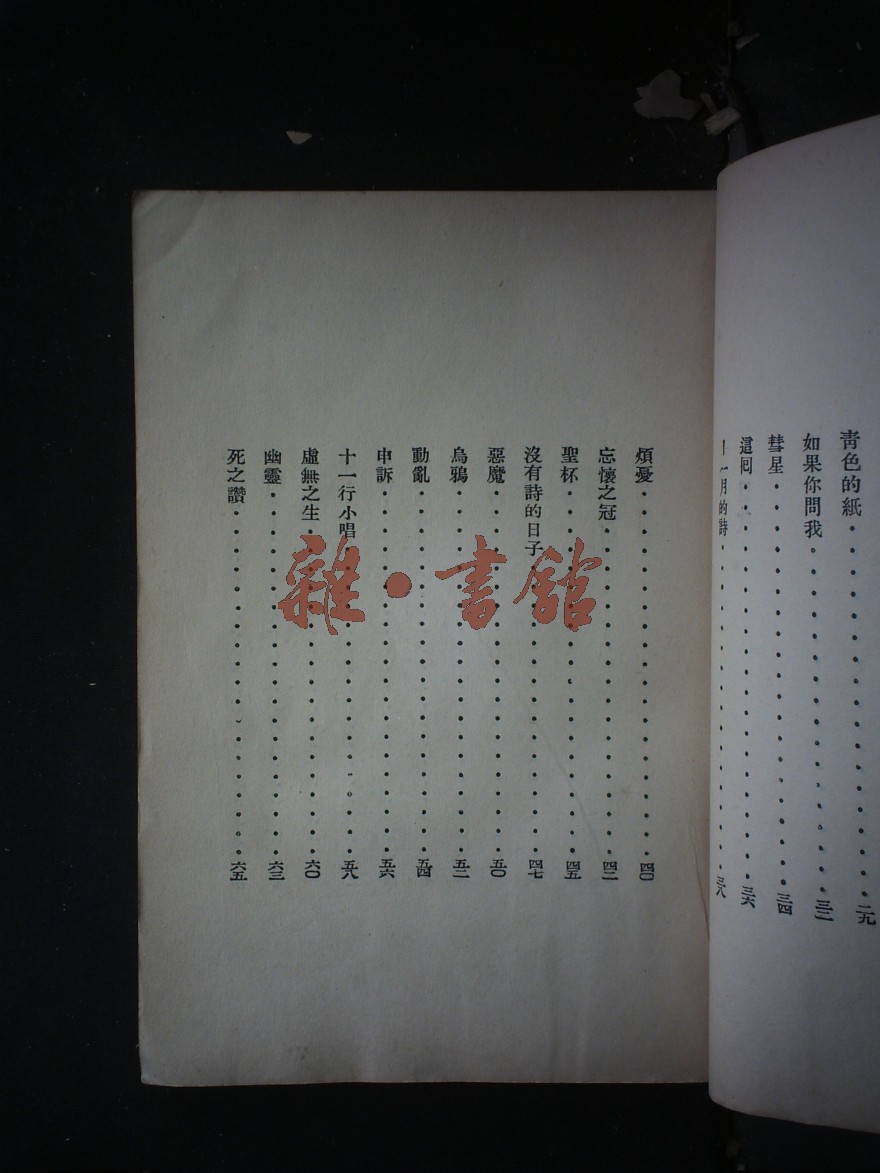 青色的紙····················二九
如果你問我··················三二
彗星····················三四
這囘····················三六
十一月的詩··················三八
煩憂····················四〇
忘懷之冠··················四二
聖杯····················四五
沒有詩的日子················四七
惡魔····················五〇
烏鴉····················五二
動亂····················五四
申訴····················五六
十一行小唱·················五八
虛無之生··················六〇
幽靈····················六三
死之讚···················六五
雜·書舘